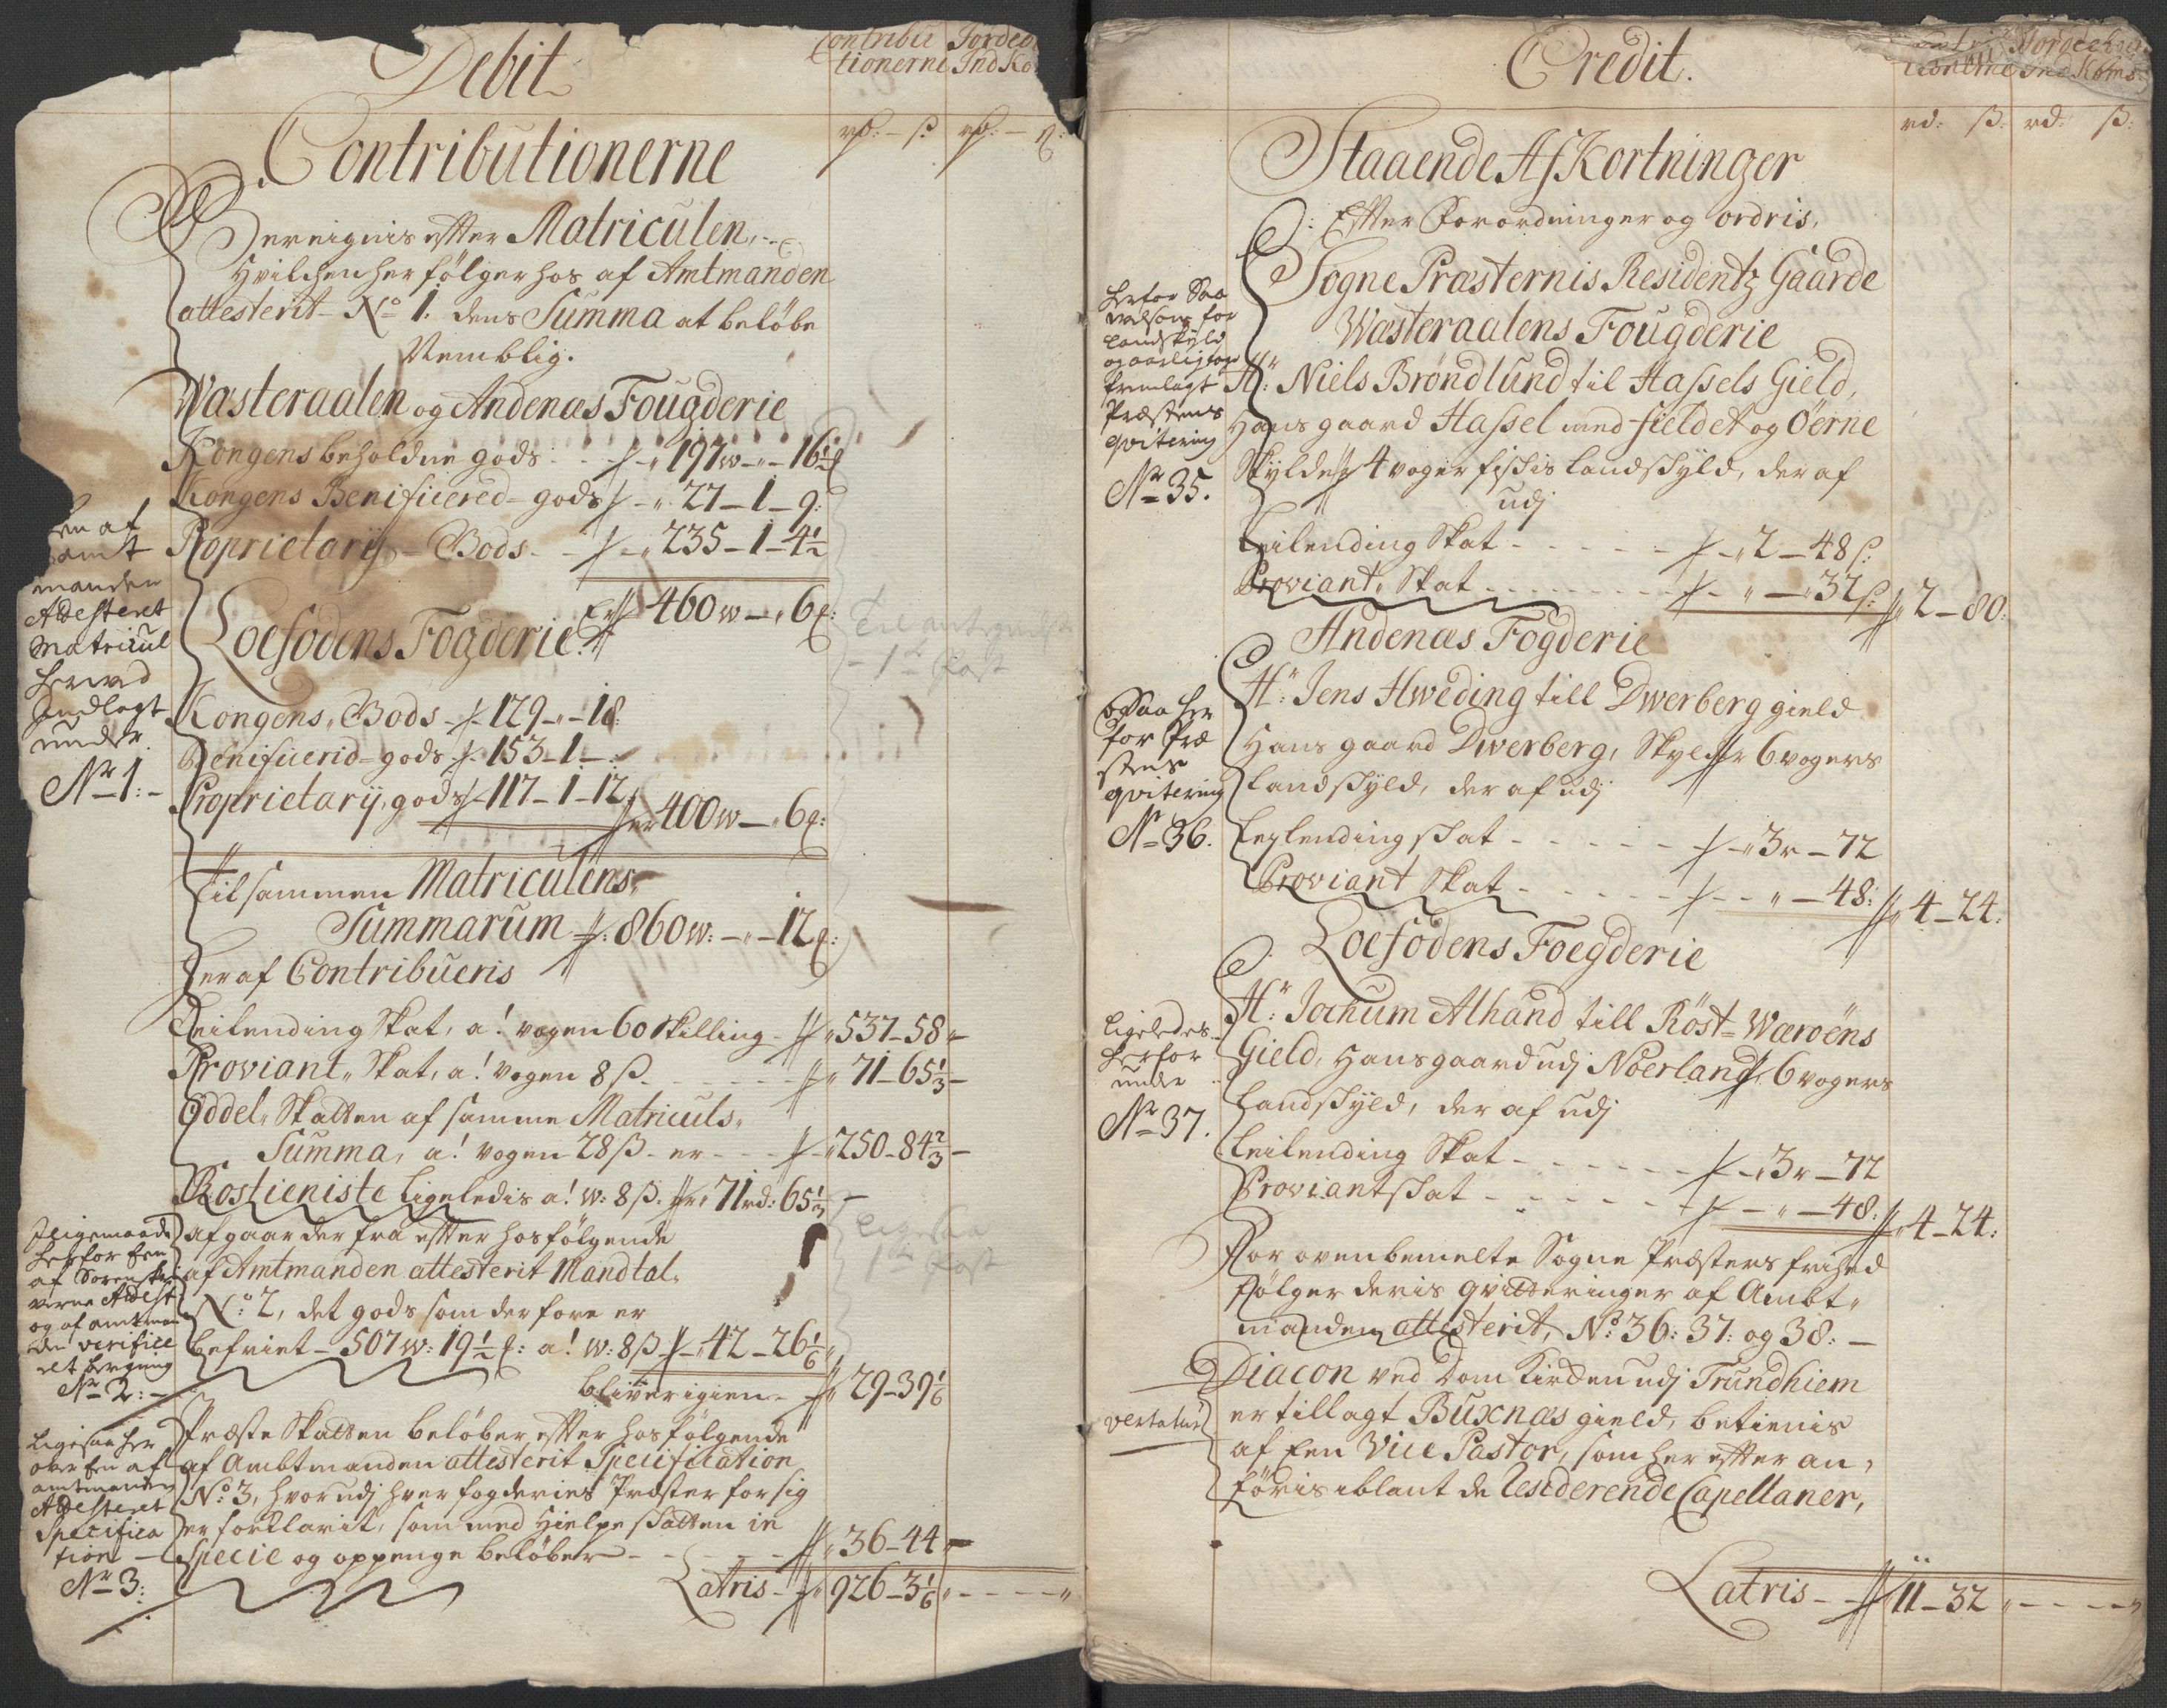 Debit
Contribu
tionerne
Jordebo
Ind Ko
rd: ß rd: ß:
Contributionerne
Bereignis effter Matriculen,
Hvilchen her følger hos af Amtmanden
attesterit No 1. dens Summa at beløbe
Nemblig.
Wasteraalen og Andenæs Fougderie
Kongens beholdne gods 197 w - 16½
Kongens Benificered gods 27 - 1 - 9:
Proprietarij Gods 235 - 1 - 4½
Er 460 w - 6
Loefodens Fogderie
Kongens Gods 129 - 18
Benificerid gods 153 - 1 -
Proprietarij gods 117 - 1 - 12
er 400 w - 6
Tilsammen Matriculens
Summarum 860 w: - 12
Heraf Contribueris
Leilending Skat, a! vogen 60 Skilling 537 - 58
Proviant Skat, a! vogen 8 ß 71 - 65⅓
Oddel Skatten af samme Matriculs
Summa, a! vogen 28 ß er 250 - 84⅔
Rostieniste ligeledis a! w: 8 ß er 71 rd: 65⅓
afgaar der fra effter hosfølgende
af Amtmanden attesterit Mandtal
No: 2, det gods som derfore er
befriet 507 w: 19½ a! w: 8 ß 42 - 26⅙
bliver igien 29 - 39⅙
Præste Skatten beløber effter hosfølgende
af Ambtmanden attesterit Specification
No: 3, hvorudj hver fogderies Præster for sig
er forklarit, som med Hielpe skatten in
specie og oppenge beløber 36 - 44
Latris 926 - 3⅙
en af
amt
manden
Attesteret
Matricul
herved
Indlagt
under
No 1:
Iligemaade
herfor Een
af Sorenskri
verne Attest
og af amtman
den verifice
ret
No 2:
Ligesaa her
over Een af
amtmanden
Attesteret
Specifica
tion
No 3:
1te Post
Ligesaa
1te Post
Credit.
tionerne
Jordebo
Ind Koms
rd: ß: rd: ß:
Staaende AfKortninger
Effter Forordninger og ordris,
Sogne Præsternis Residentz Gaarde
Wasteraalens Fougderie
Hr: Niels Brøndlund til Hassels Gield,
Hans gaard Hassel med fieldet og Öerne
Skylder 4 voger fiskis landskyld, deraf
udj
Leilending Skat 2 - 48 ß:
Proviant Skat 32 ß: 2 - 80:
Andenæs Fogderie
Hr: Jens Hweding till Dwerberg gield
Hans gaard Dwerberg, Skylder 6 vogers
landskyld, deraf udj
Leylending skat 3 r - 72
Proviant Skat 48: 4 - 24:
Loefodens Foegderie
Hr: Jochum Alhand till Röst Waröens
Gield, Hans gaard udj Nöerland 6 vogers
Landskyld, deraf udj
Leilending Skat 3 r - 72
Proviantskat 48: 4 - 24:
For ovenbemelte Sogne Præsters frihed
følger deris qvitteringer af Ambt
manden attesterit, No: 36: 37: og 38:
Diacon ved Dom Kirken udj Trundhiem
er tillagt Buxnæs gield, betienis
af Een Vice Pastor, som her effter an
føris iblant de Residerende Capellaner,
Latris 11 - 32
herfor Saa
velsom for
Landskyld
og aarlig
fremlagt
Præstens
qvitering
No 35.
Ogsaa her
for Præ
stens
qvitering
No 36.
Ligeledes
herfor
under
No 37.
vertatur